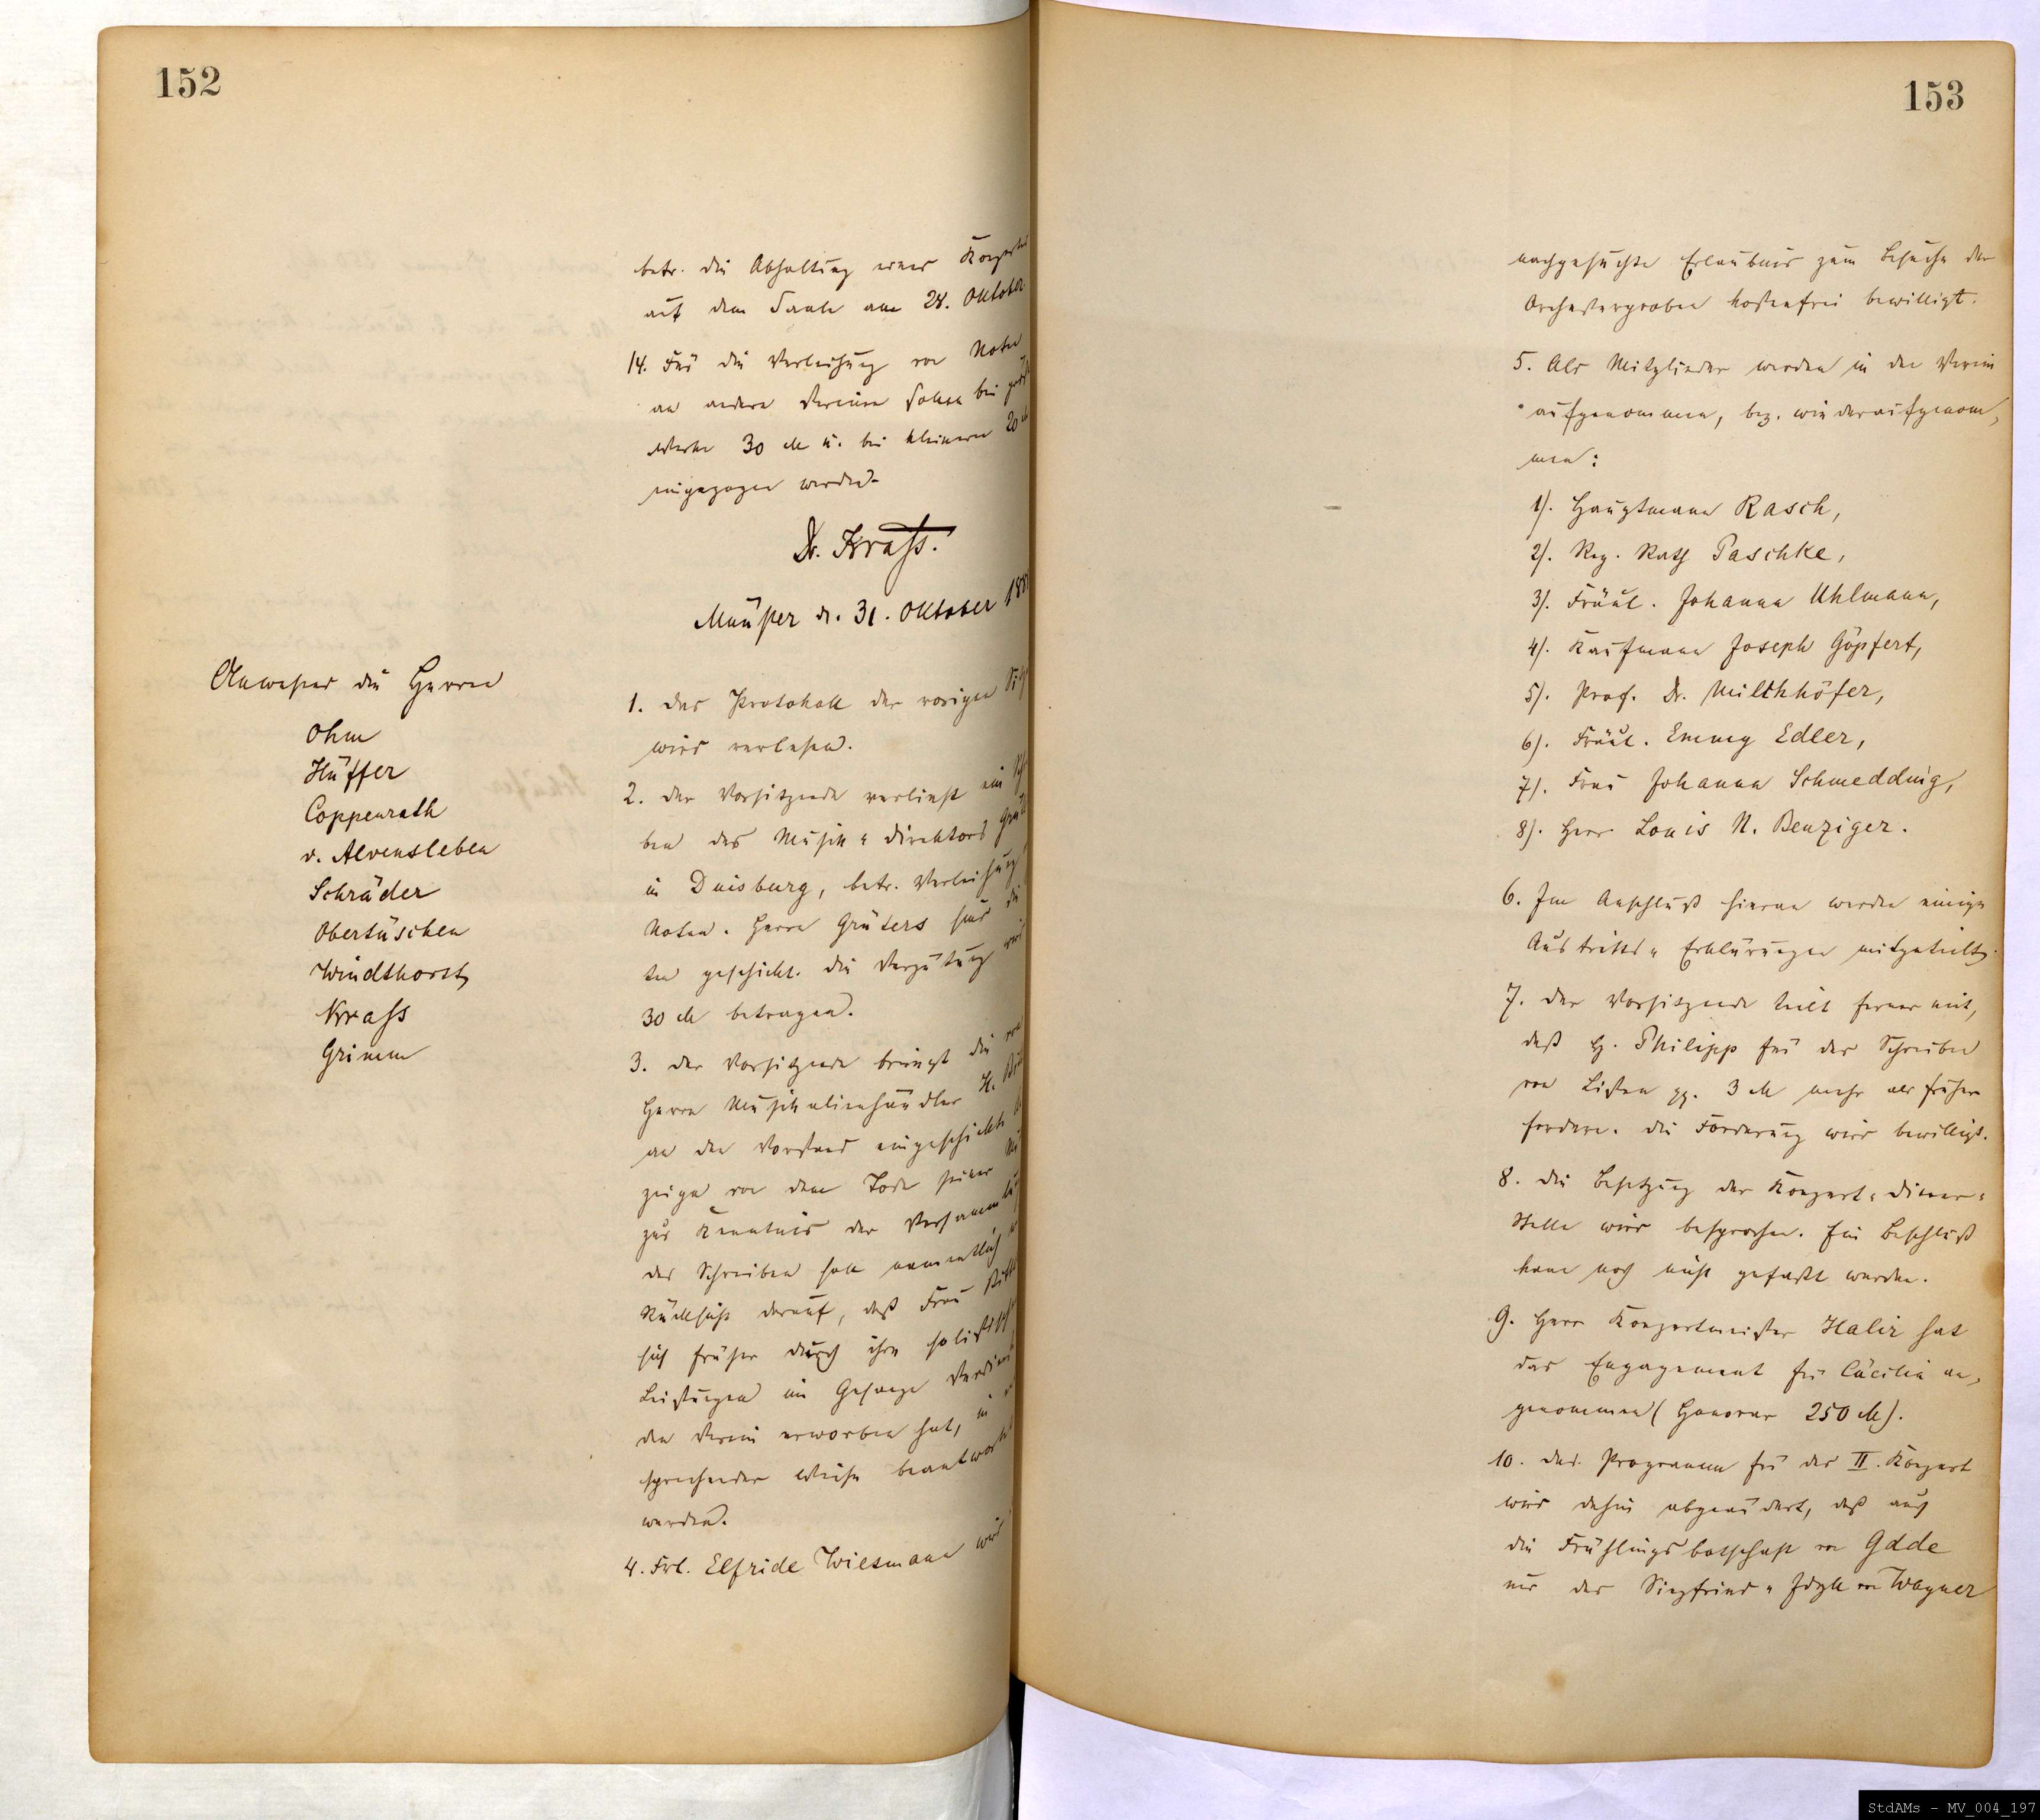 152
betr. die Abhaltung eines Konzertes
auf dem Saale am 28. Oktober.
14. Für die Verleihung von Noten
an andere Vereine sollen bei
Werke 30 M u. bei kleineren 20 M
eingezogen werden.
Dr. Krass.
Münster d. 31. Oktober
Anwesend die Herren
Ohm
Hüffer
Coppenrath
v. Alvensleben
Schräder
Obertüschen
Windthorst
Krass
Grimm
1. Das Protokoll der vorigen
wird verlesen.
2. Der Vorsitzende verliest ein
ben des Musik-Direktors
in Duisburg, betr. Verleihung
Noten. Herrn Grüters sind die
ten geschickt. Die Vergütung
30 M betragen.
3. Der Vorsitzende bringt die
Herrn Musikalienhändler H.
an den Vorstand eingeschickte
zeige von dem Tode seiner
zur Kenntnis der Versammlung
Das Schreiben soll namentlich
Rücksicht darauf, daß Frau
sich früher durch ihre solistischen
Leistungen im Gesange Verdienst
den Verein erworben hat, in
sprechender Weise beantwortet
werden.
4. Frl. Elfride Wiesmann wird
153
nachgesuchte Erlaubnis zum Besuche der
Orchesterproben kostenfrei bewilligt.
5. Als Mitglieder werden in den Verein
aufgenommen, bez. wiederaufgenom-
men:
1). Hauptmann Rasch,
2). Reg. Rath Paschke,
3). Fräul. Johanna Uhlmann,
4). Kaufmann Joseph Göpfert,
5). Prof. Dr. Milchhöfer,
6). Fräul. Emmy Edler,
7). Frau Johanna Schmedding,
8). Herr Louis N. Benziger.
6. Im Anschluß hieran werden einige
Austritts-Erklärungen mitgeteilt.
7. Der Vorsitzende teilt ferner mit,
daß H. Philipp für das Schreiben
von Listen pp. 3 M mehr als früher
fordere. Die Forderung wird bewilligt.
8. Die Besetzung der Konzert-Diener-
Stelle wird besprochen. Ein Beschluß
kann noch nicht gefaßt werden.
9. Herr Konzertmeister Halir hat
das Engagement für Cäcilia an-
genommen (Honorar 250 M).
10. Das Programm für das II. Konzert
wird dahin abgeändert, daß auch
die Frühlingsbotschaft von Gade
und das Siegfried-Idyll von Wagner
StdAMs - MV_004_197